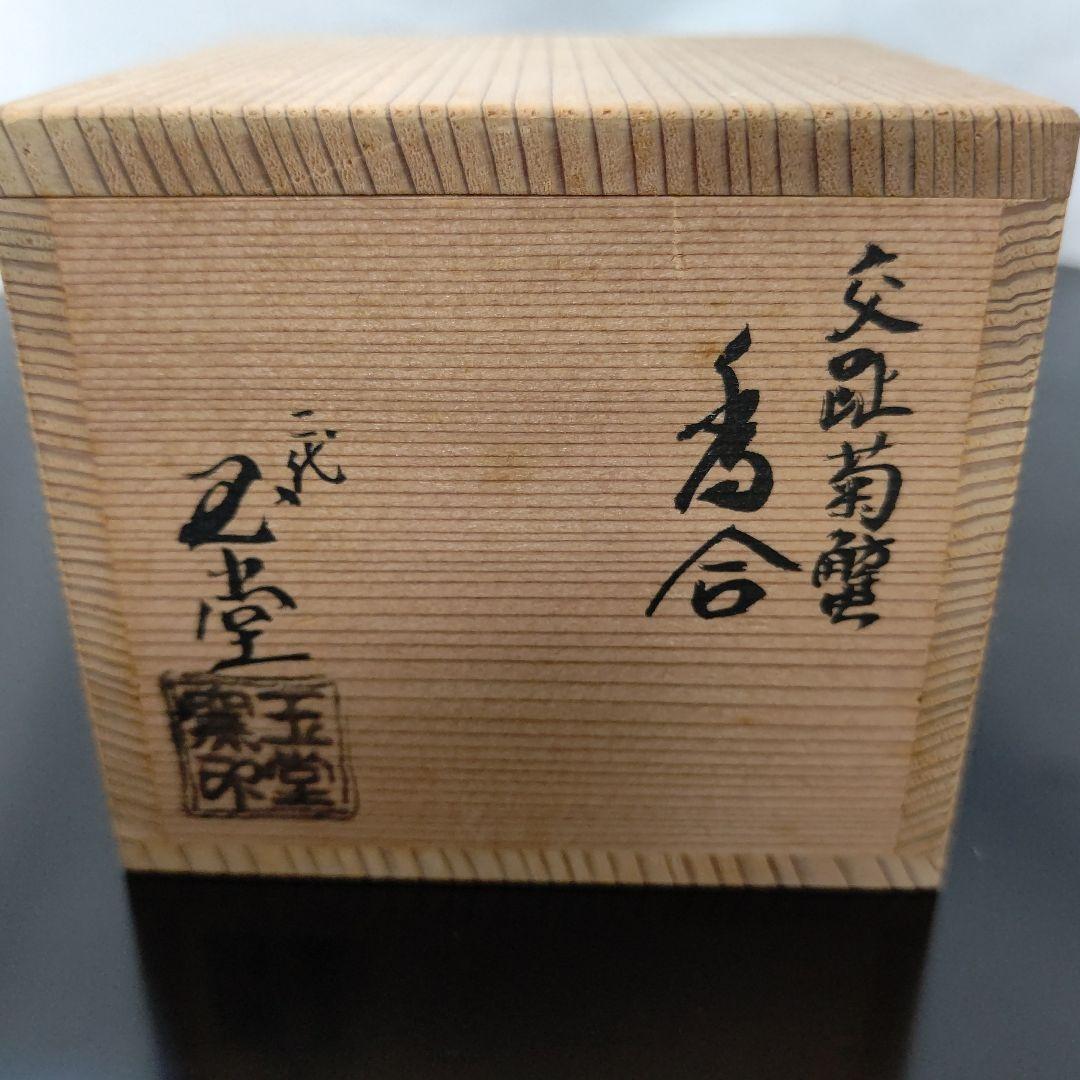 交趾菊蟹
香合
二代
玉堂
玉堂
窯印